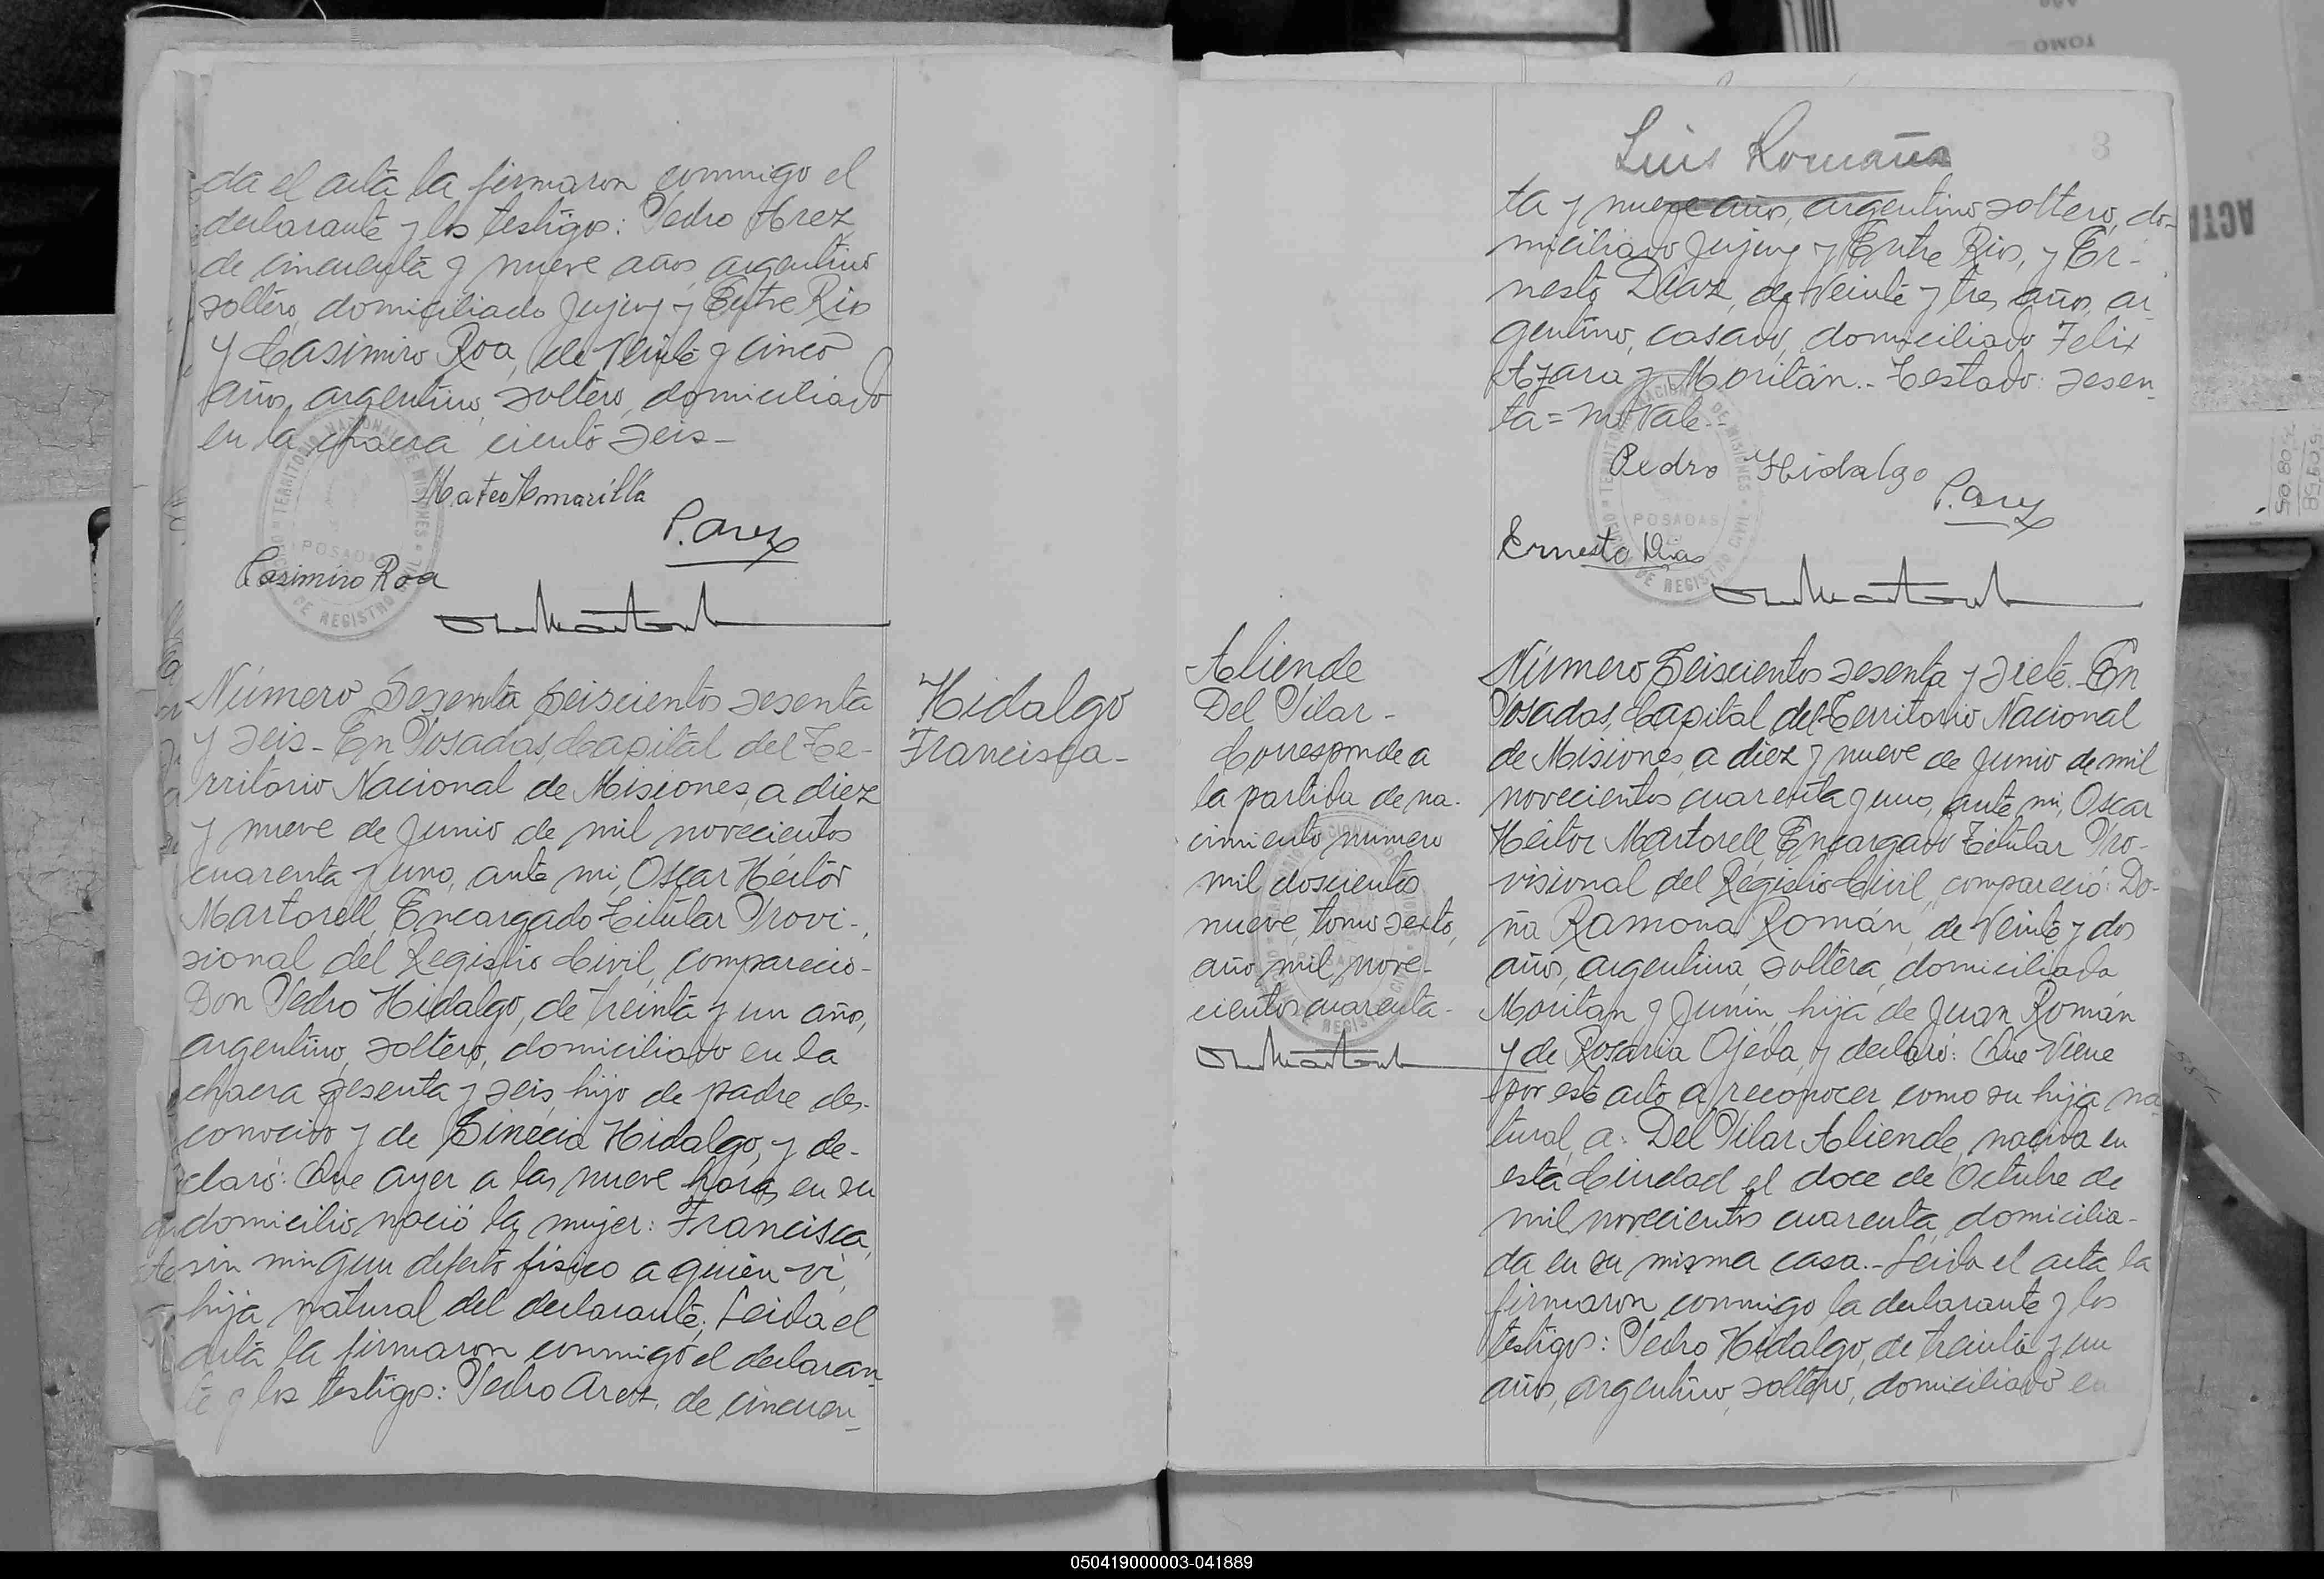 da el acta la firmaron conmigo el
declarante y los testigos: Pedro Arez
de cincuenta y nueve años, argentino
soltero, domiciliado Jujuy y Entre Rios
y Casimiro Roa, de veinte y cinco
años, argentino, soltero, domiciliado
en la chacra ciento seis-
Mateo Amarilla
P. Arez
Casimiro Roa
TERRITORIO NACIONAL DE MISIONES
POSADAS
DE REGISTRO CIVIL
Número Sesenta seiscientos sesenta
y seis- En Posadas, Capital del Te-
rritorio Nacional de Misiones, a diez
y nueve de Junio de mil novecientos
cuarenta y uno, ante mi, Oscar Héctor
Martorell, Encargado Titular Provi-
sional del Registro Civil, compareció-
Don Pedro Hidalgo, de treinta y un año,
argentino, soltero, domiciliado en la
chacra sesenta y seis, hijo de padre des-
conocido y de Hidalgo, y de-
claró: Que ayer a las nueve horas, en su
domicilio, nació la mujer: Francisca,
sin ningun defecto fisico a quien vi,
hija natural del declarante; Leida el
acta la firmaron conmigo el declaran-
te y los testigos: Pedro Arez, de cincuen-
Hidalgo
Francisca-
Luis Romaña
3
ta y nueve años, argentino soltero, do-
miciliado Jujuy y Entre Rios, y Er-
nesto Diaz, de veinte y tres años, ar
gentino, casado, domiciliado Felix
Azara y Moritán.- Testado: sesen-
ta = no vale.-
Pedro Hidalgo
P. Arez
Ernesto Dias
TERRITORIO NACIONAL DE MISIONES
POSADAS
DE REGISTRO CIVIL
Aliende
Del Pilar-
Corresponde a
la partida de na-
cimiento numero
mil doscientos
nueve, tomo sexto,
año mil nove-
cientos cuarenta-
Número Seiscientos sesenta y siete.- En
Posadas, Capital del Territorio Nacional
de Misiones, a diez y nueve de Junio de mil
novecientos cuarenta y uno, ante mi, Oscar
Héctor Martorell, Encargado Titular Pro-
visional del Registro Civil, compareció: Do-
ña Ramona Román, de veinte y dos
años, argentina, soltera, domiciliada
Moritan y Junin, hija de Juan Román
y de Rosaria Ojeda, y declaró: Que viene
por este acto a reconocer como su hija na
tural, a: Del Pilar Aliende, nacida en
esta Ciudad el doce de Octubre de
mil novecientos cuarenta, domicilia-
da en su misma casa.- Leida el acta la
firmaron conmigo la declarante y los
testigos: Pedro Hidalgo, de treinta y un
años, argentino, soltero, domiciliado en
TOMO
ACTA
050419000003-041889